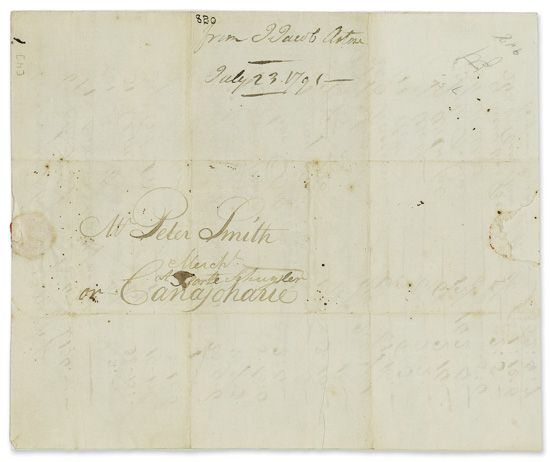 880
from J Jacob Astore
July 23. 1791
Mr Peter Smith
Mercht
at Forte Schuyler
or Canajoharie